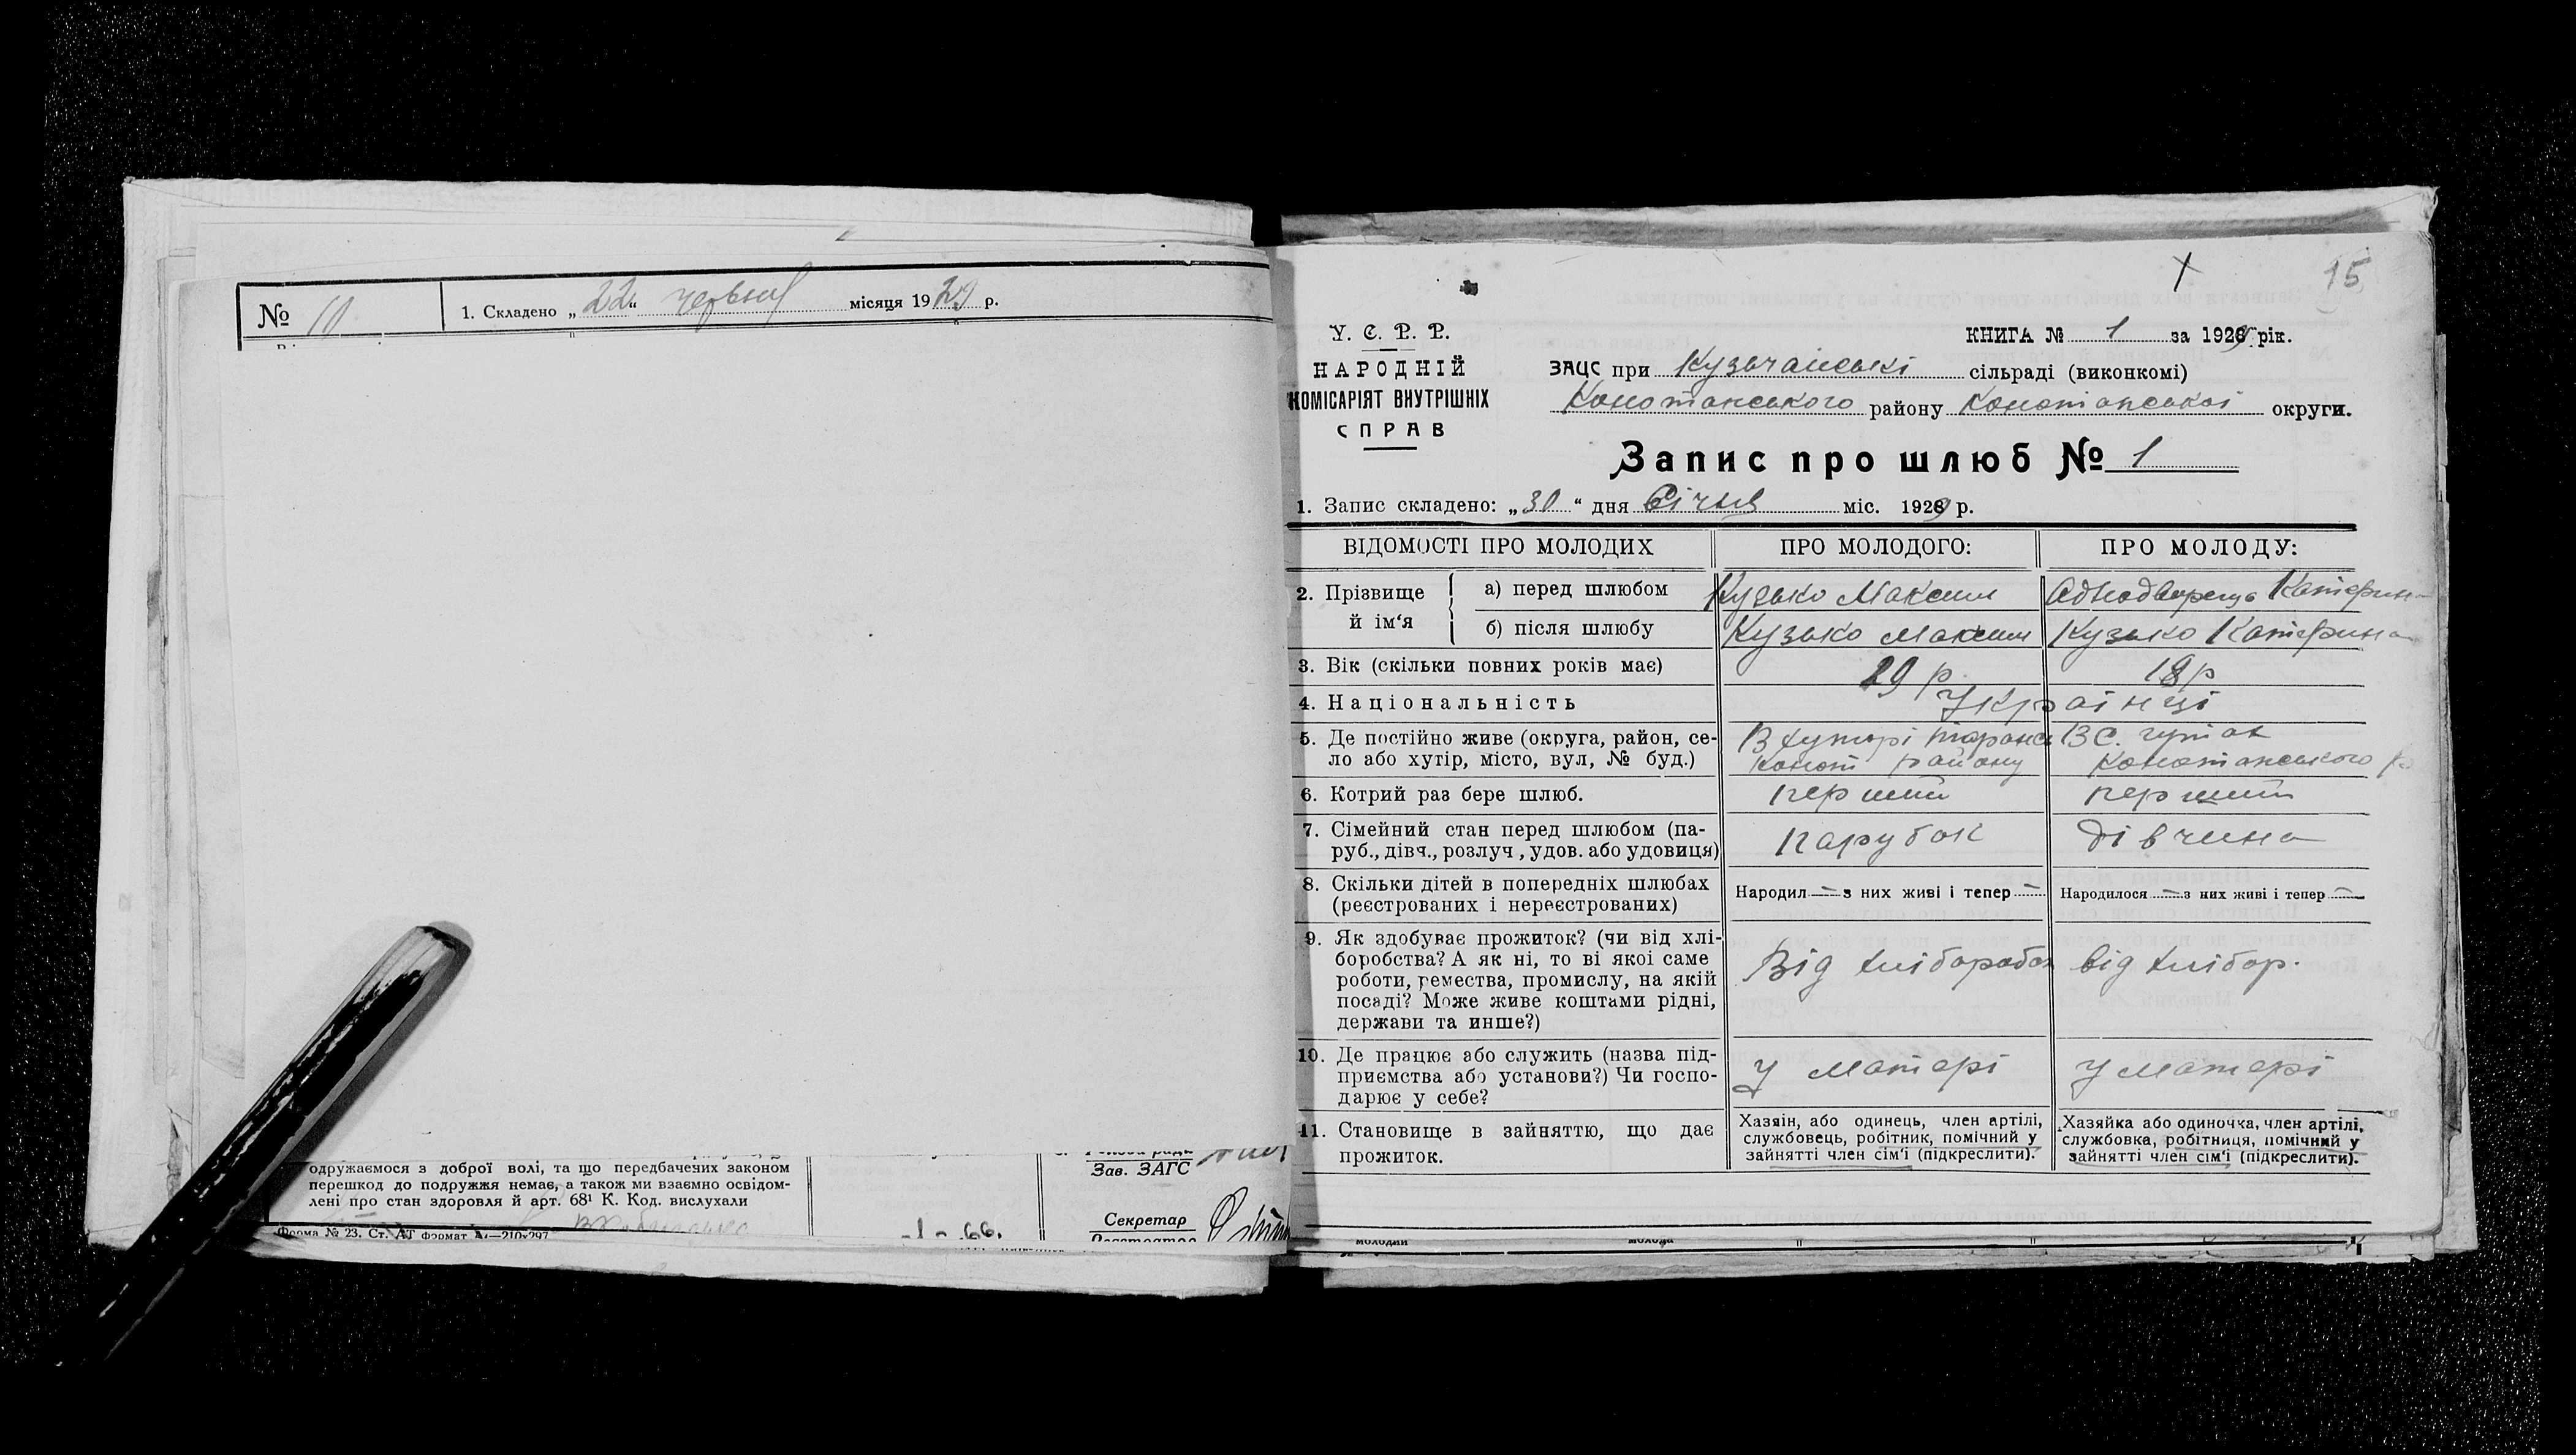 № 10
1. Складено „22“ червня місяця 1929 р.
одружаємося з доброї волі, та що передбачених законом
перешкод до подружжя немає, а також ми взаємно освідом-
лені про стан здоровля й арт. 68¹ К. Код. вислухали
Форма № 23. Ст. АТ формат А₄—210×297
Зав. ЗАГС
Секретар
15
У. С. Р. Р.
НАРОДНІЙ
КОМІСАРІЯТ ВНУТРІШНІХ
СПРАВ
КНИГА № 1 за 1929 рік.
ЗАЦС при Кузьчанські сільраді (виконкомі)
Конотопського району Конотопської округи.
Запис про шлюб № 1
1. Запис складено: „30“ дня Січня міс. 1929 р.
ВІДОМОСТІ ПРО МОЛОДИХ
ПРО МОЛОДОГО:
ПРО МОЛОДУ:
2. Прізвище й ім‘я
а) перед шлюбом
Кузько Максим
Однодворець Катерина
б) після шлюбу
Кузько Максим
Кузько Катерина
3. Вік (скільки повних років має)
29 р.
18 р
4. Національність
Українці
5. Де постійно живе (округа, район, се-
ло або хутір, місто, вул, № буд.)
В хуторі
Конот району
В С.
Конотопського р
6. Котрий раз бере шлюб.
перший
перший
7. Сімейний стан перед шлюбом (па-
руб., дівч., розлуч, удов. або удовиця)
парубок
дівчина
8. Скільки дітей в попередніх шлюбах
(реєстрованих і нереєстрованих)
Народил — з них живі і тепер —
Народилося — з них живі і тепер —
9. Як здобуває прожиток? (чи від хлі-
боробства? А як ні, то ві якої саме
роботи, ремества, промислу, на якій
посаді? Може живе коштами рідні,
держави та инше?)
Від хліборобст
від хлібор.
10. Де працює або служить (назва під-
приємства або установи?) Чи госпо-
дарює у себе?
У матері
У матері
11. Становище в зайняттю, що дає
прожиток.
Хазяін, або одинець, член артілі,
службовець, робітник, помічний у
зайнятті член сім‘ї (підкреслити).
Хазяйка або одиночка, член артілі,
службовка, робітниця, помічний у
зайнятті член сім‘ї (підкреслити).
молодий
молода